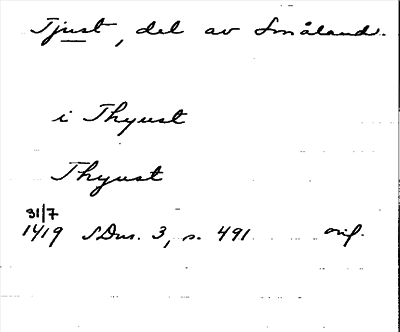 Tjust, del av Småland.
i Thyust
Thyust
31/7
1419 SDns. 3, s. 491 orig.